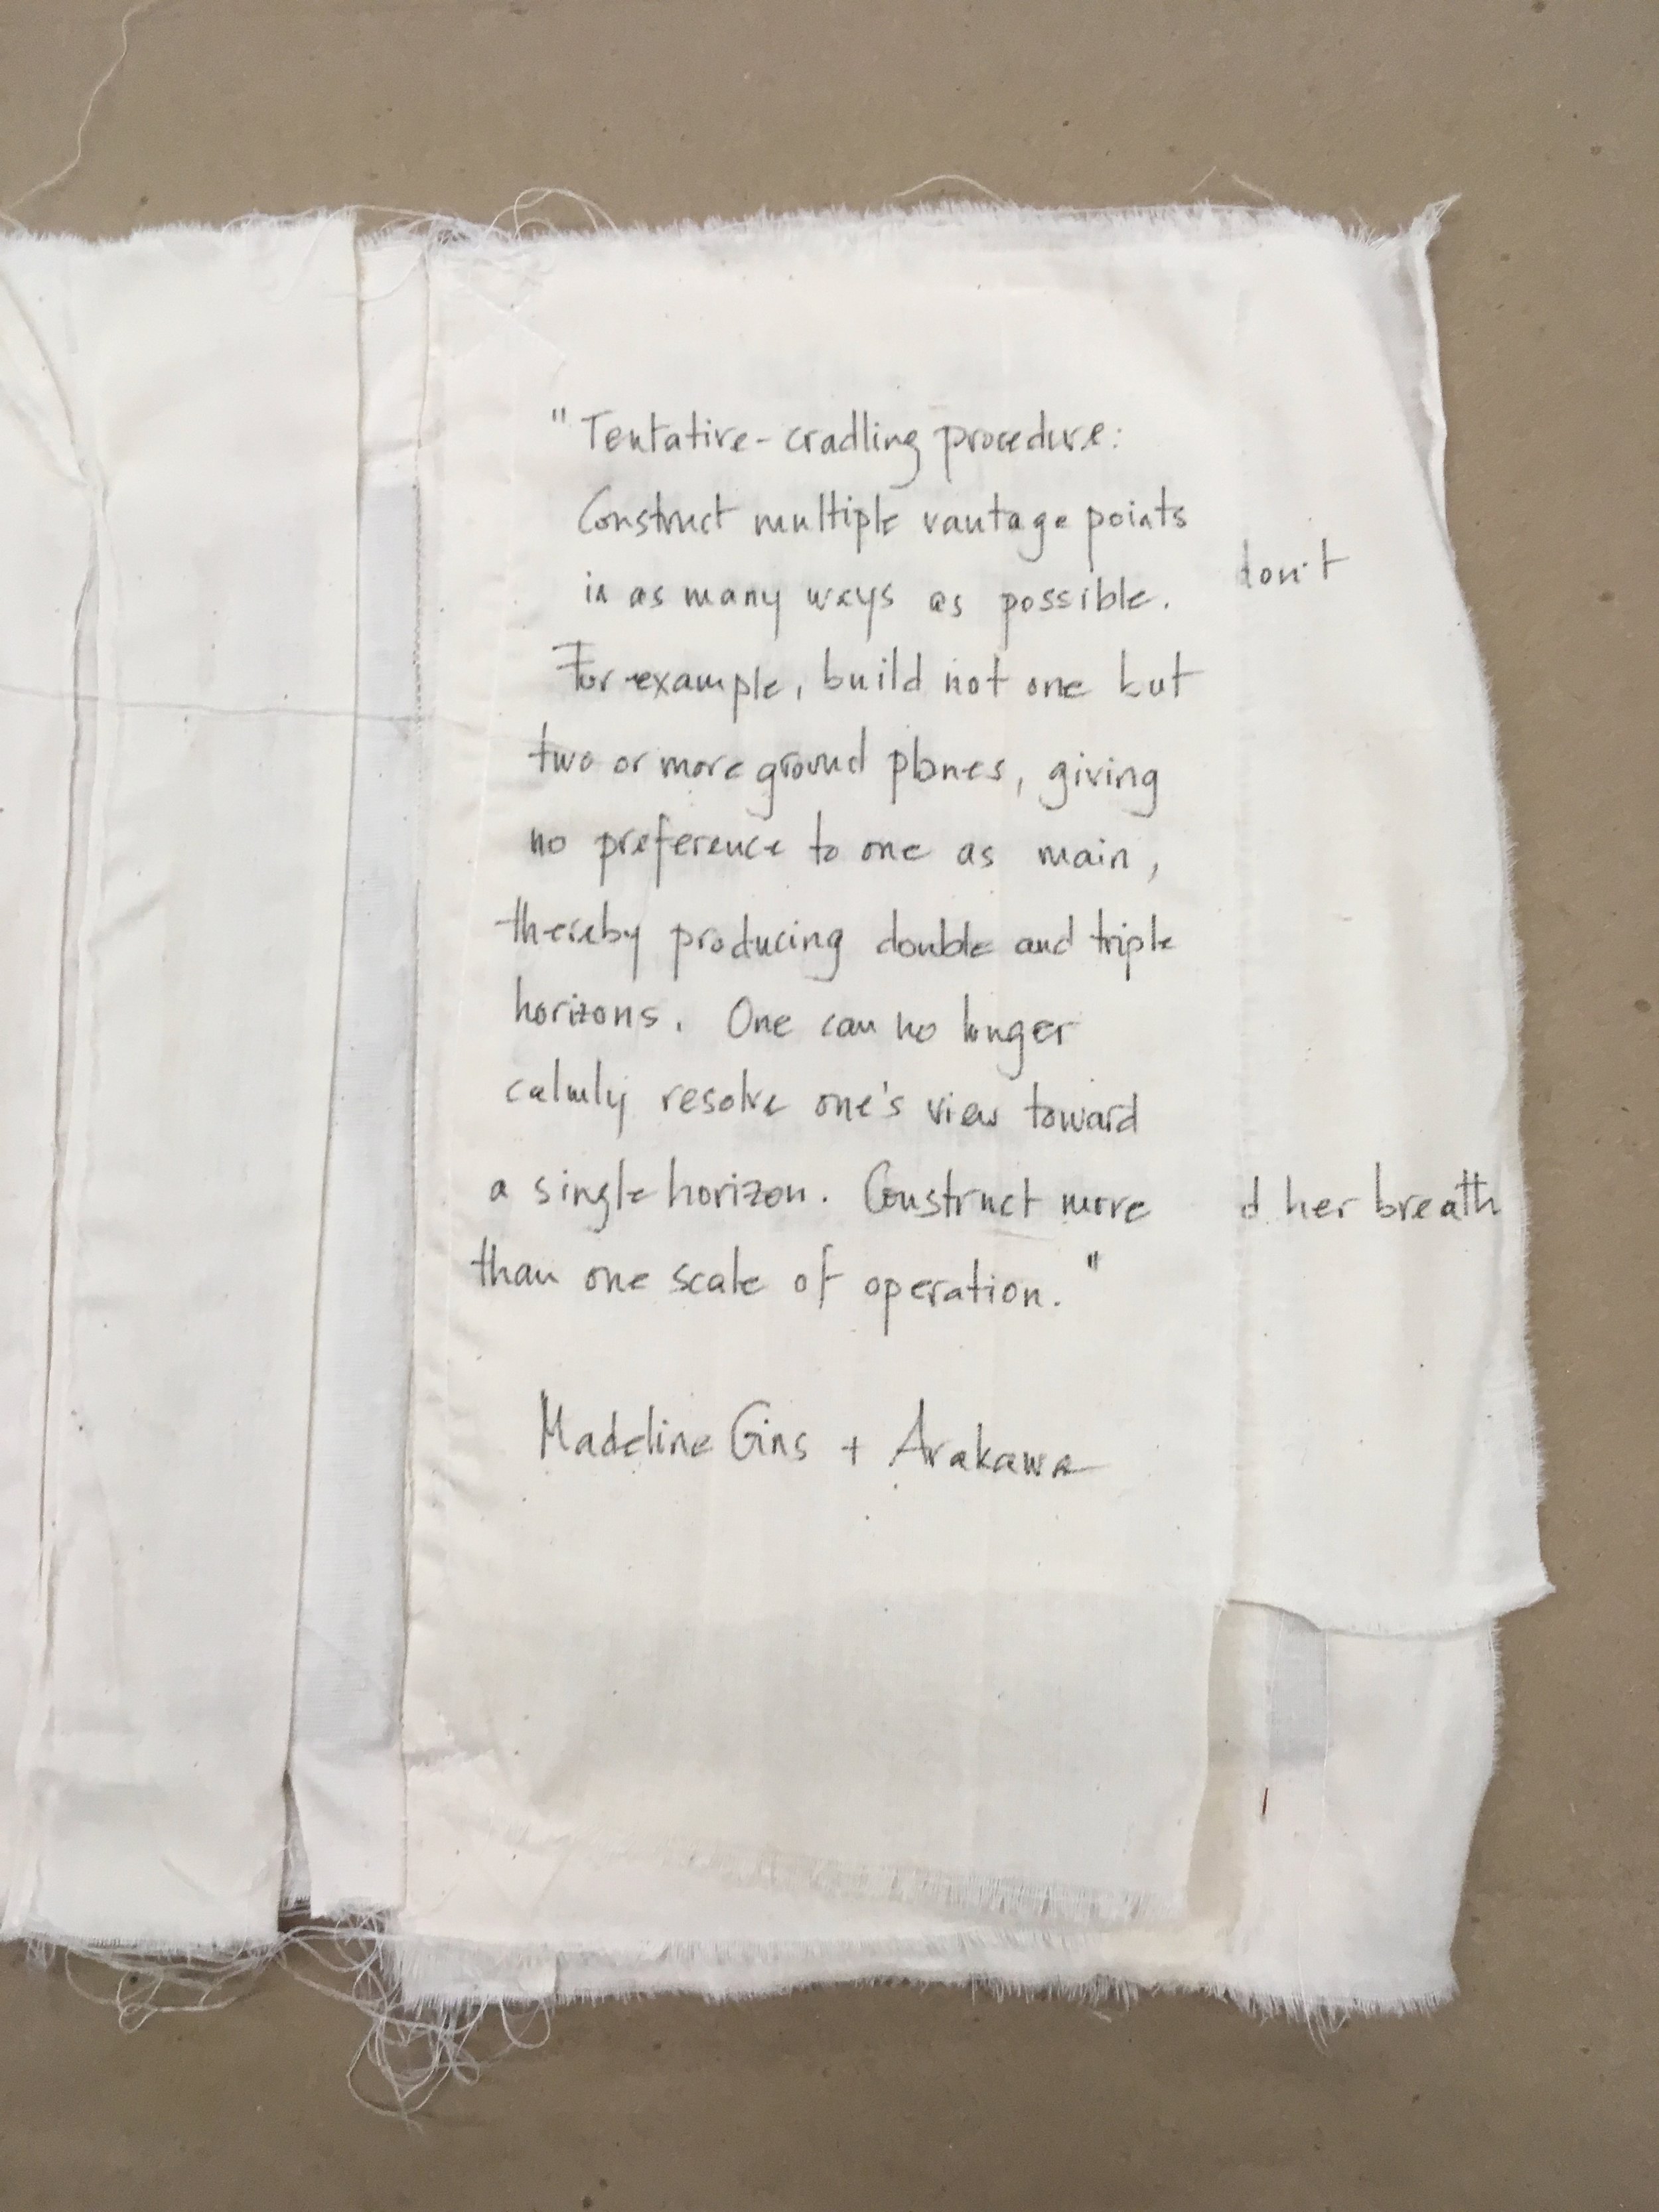 "Tentative-cradling procedure:
Construct multiple vantage points
in as many ways as possible.
For example, build not one but
two or more ground planes, giving
no preference to one as main,
thereby producing double and triple
horizons. One can no longer
calmly resolve one's view toward
a single horizon. Construct more
than one scale of operation."
Madeline Gins + Arakawa
don't
d her breath